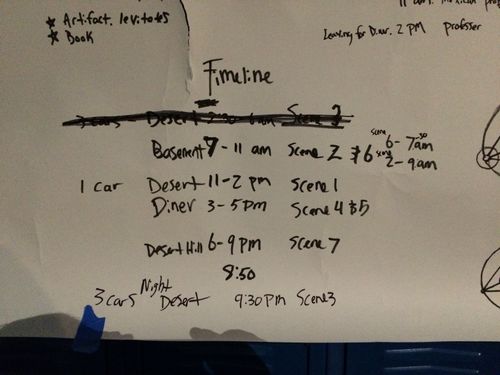 ★ Artifact. levitates
★ Book
Leaving for Diner. 2 PM professer
Timeline
3 cars Desert Scene 3
Basement 7-11 am Scene 2 & 6 scene 6- 7:30am
scene 2-9am
1 car Desert 11-2 pm Scene 1
Diner 3-5pm Scene 4 & 5
Desert Hill 6-9pm Scene 7
8:50
3 cars Night Desert 9:30pm Scene3